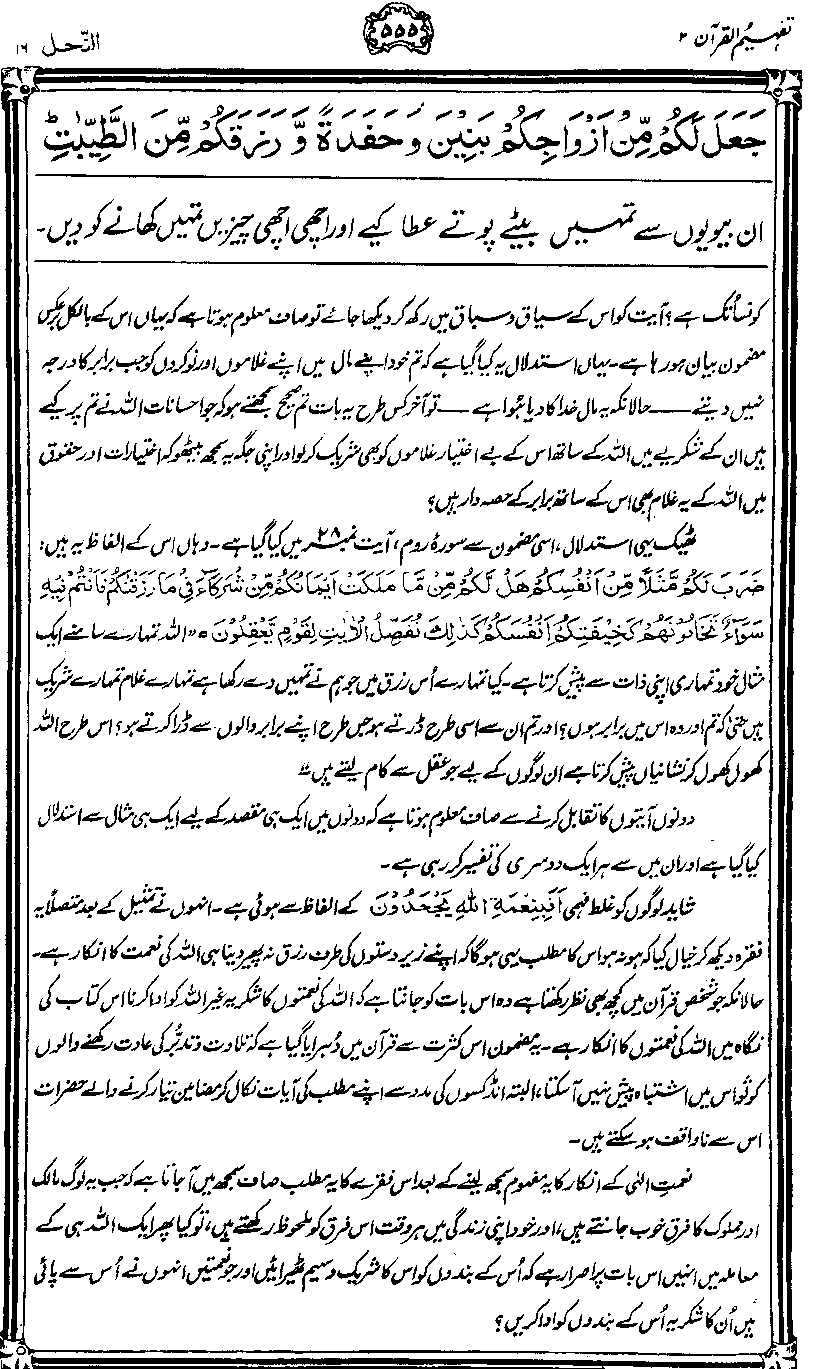 تفہیم القرآن ۲
۵۵۵
النّحل ۱۶
جَعَلَ لَكُمْ مِّنْ اَزْوَاجِكُمْ بَنِيْنَ وَحَفَدَةً وَّ رَزَقَكُمْ مِّنَ الطَّيِّبٰتِ ؕ
ان بیویوں سے تمہیں بیٹے پوتے عطا کیے اور اچھی اچھی چیزیں تمہیں کھانے کو دیں۔
کونسا تُک ہے؟ آیت کو اس کے سیاق و سباق میں رکھ کر دیکھا جائے تو صاف معلوم ہوتا ہے کہ یہاں اس کے بالکل برعکس
مضمون بیان ہو رہا ہے۔ یہاں استدلال یہ کیا گیا ہے کہ تم خود اپنے مال میں اپنے غلاموں اور نوکروں کو جب برابر کا درجہ
نہیں دیتے ــــــ حالانکہ یہ مال خدا کا دیا ہُوا ہے ــــــ تو آخر کس طرح یہ بات تم صحیح سمجھتے ہو کہ جو احسانات اللہ نے تم پر کیے
ہیں ان کے شکریے میں اللہ کے ساتھ اس کے بے اختیار غلاموں کو بھی شریک کر لو اور اپنی جگہ یہ سمجھ بیٹھو کہ اختیارات اور حقوق
میں اللہ کے یہ غلام بھی اس کے ساتھ برابر کے حصہ دار ہیں؟
ٹھیک یہی استدلال، اسی مضمون سے سورۂ روم، آیت نمبر ۲۸ میں کیا گیا ہے۔ وہاں اس کے الفاظ یہ ہیں:
ضَرَبَ لَكُمْ مَّثَلًا مِّنْ اَنْفُسِكُمْ هَلْ لَّكُمْ مِّنْ مَّا مَلَكَتْ اَيْمَانُكُمْ مِّنْ شُرَكَآءَ فِيْ مَا رَزَقْنٰكُمْ فَاَنْتُمْ فِيْهِ
سَوَآءٌ تَخَافُوْنَهُمْ كَخِيْفَتِكُمْ اَنْفُسَكُمْ كَذٰلِكَ نُفَصِّلُ الْاٰيٰتِ لِقَوْمٍ يَّعْقِلُوْنَ ہ "اللہ تمہارے سامنے ایک
مثال خود تمہاری اپنی ذات سے پیش کرتا ہے۔ کیا تمہارے اُس رزق میں جو ہم نے تمہیں دے رکھا ہے تمہارے غلام تمہارے شریک
ہیں حتیٰ کہ تم اور وہ اس میں برابر ہوں؟ اور تم ان سے اسی طرح ڈرتے ہو جس طرح اپنے برابر والوں سے ڈرا کرتے ہو؟ اس طرح اللہ
کھول کھول کر نشانیاں پیش کرتا ہے ان لوگوں کے لیے جو عقل سے کام لیتے ہیں"
دونوں آیتوں کا تقابل کرنے سے صاف معلوم ہوتا ہے کہ دونوں میں ایک ہی مقصد کے لیے ایک ہی مثال سے استدلال
کیا گیا ہے اور ان میں سے ہر ایک دوسری کی تفسیر کر رہی ہے۔
شاید لوگوں کو غلط فہمی اَفَبِنِعْمَةِ اللّٰهِ يَجْحَدُوْنَ کے الفاظ سے ہوئی ہے۔ انہوں نے تمثیل کے بعد متصلاً یہ
فقرہ دیکھ کر خیال کیا کہ ہو نہ ہو اس کا مطلب یہی ہوگا کہ اپنے زیر دستوں کی طرف رزق نہ پھیر دینا ہی اللہ کی نعمت کا انکار ہے۔
حالانکہ جو شخص قرآن میں کچھ بھی نظر رکھتا ہے وہ اس بات کو جانتا ہے کہ اللہ کی نعمتوں کا شکریہ غیر اللہ کو ادا کرنا اس کتاب کی
نگاہ میں اللہ کی نعمتوں کا انکار ہے۔ یہ مضمون اس کثرت سے قرآن میں دُہرایا گیا ہے کہ تلاوت و تدبُّر کی عادت رکھنے والوں
کو تو اس میں اشتباہ پیش نہیں آ سکتا، البتہ انڈکسوں کی مدد سے اپنے مطلب کی آیات نکال کر مضامین تیار کرنے والے حضرات
اس سے ناواقف ہو سکتے ہیں۔
نعمتِ الٰہی کے انکار کا یہ مفہوم سمجھ لینے کے بعد اس فقرے کا یہ مطلب صاف سمجھ میں آ جاتا ہے کہ جب یہ لوگ مالک
اور مملوک کا فرق خوب جانتے ہیں، اور خود اپنی زندگی میں ہر وقت اس فرق کو ملحوظ رکھتے ہیں، تو کیا پھر ایک اللہ ہی کے
معاملہ میں انہیں اس بات پر اصرار ہے کہ اُس کے بندوں کو اس کا شریک و سہیم ٹھیرائیں اور جو نعمتیں انہوں نے اُس سے پائی
ہیں اُن کا شکریہ اُس کے بندوں کو ادا کریں؟